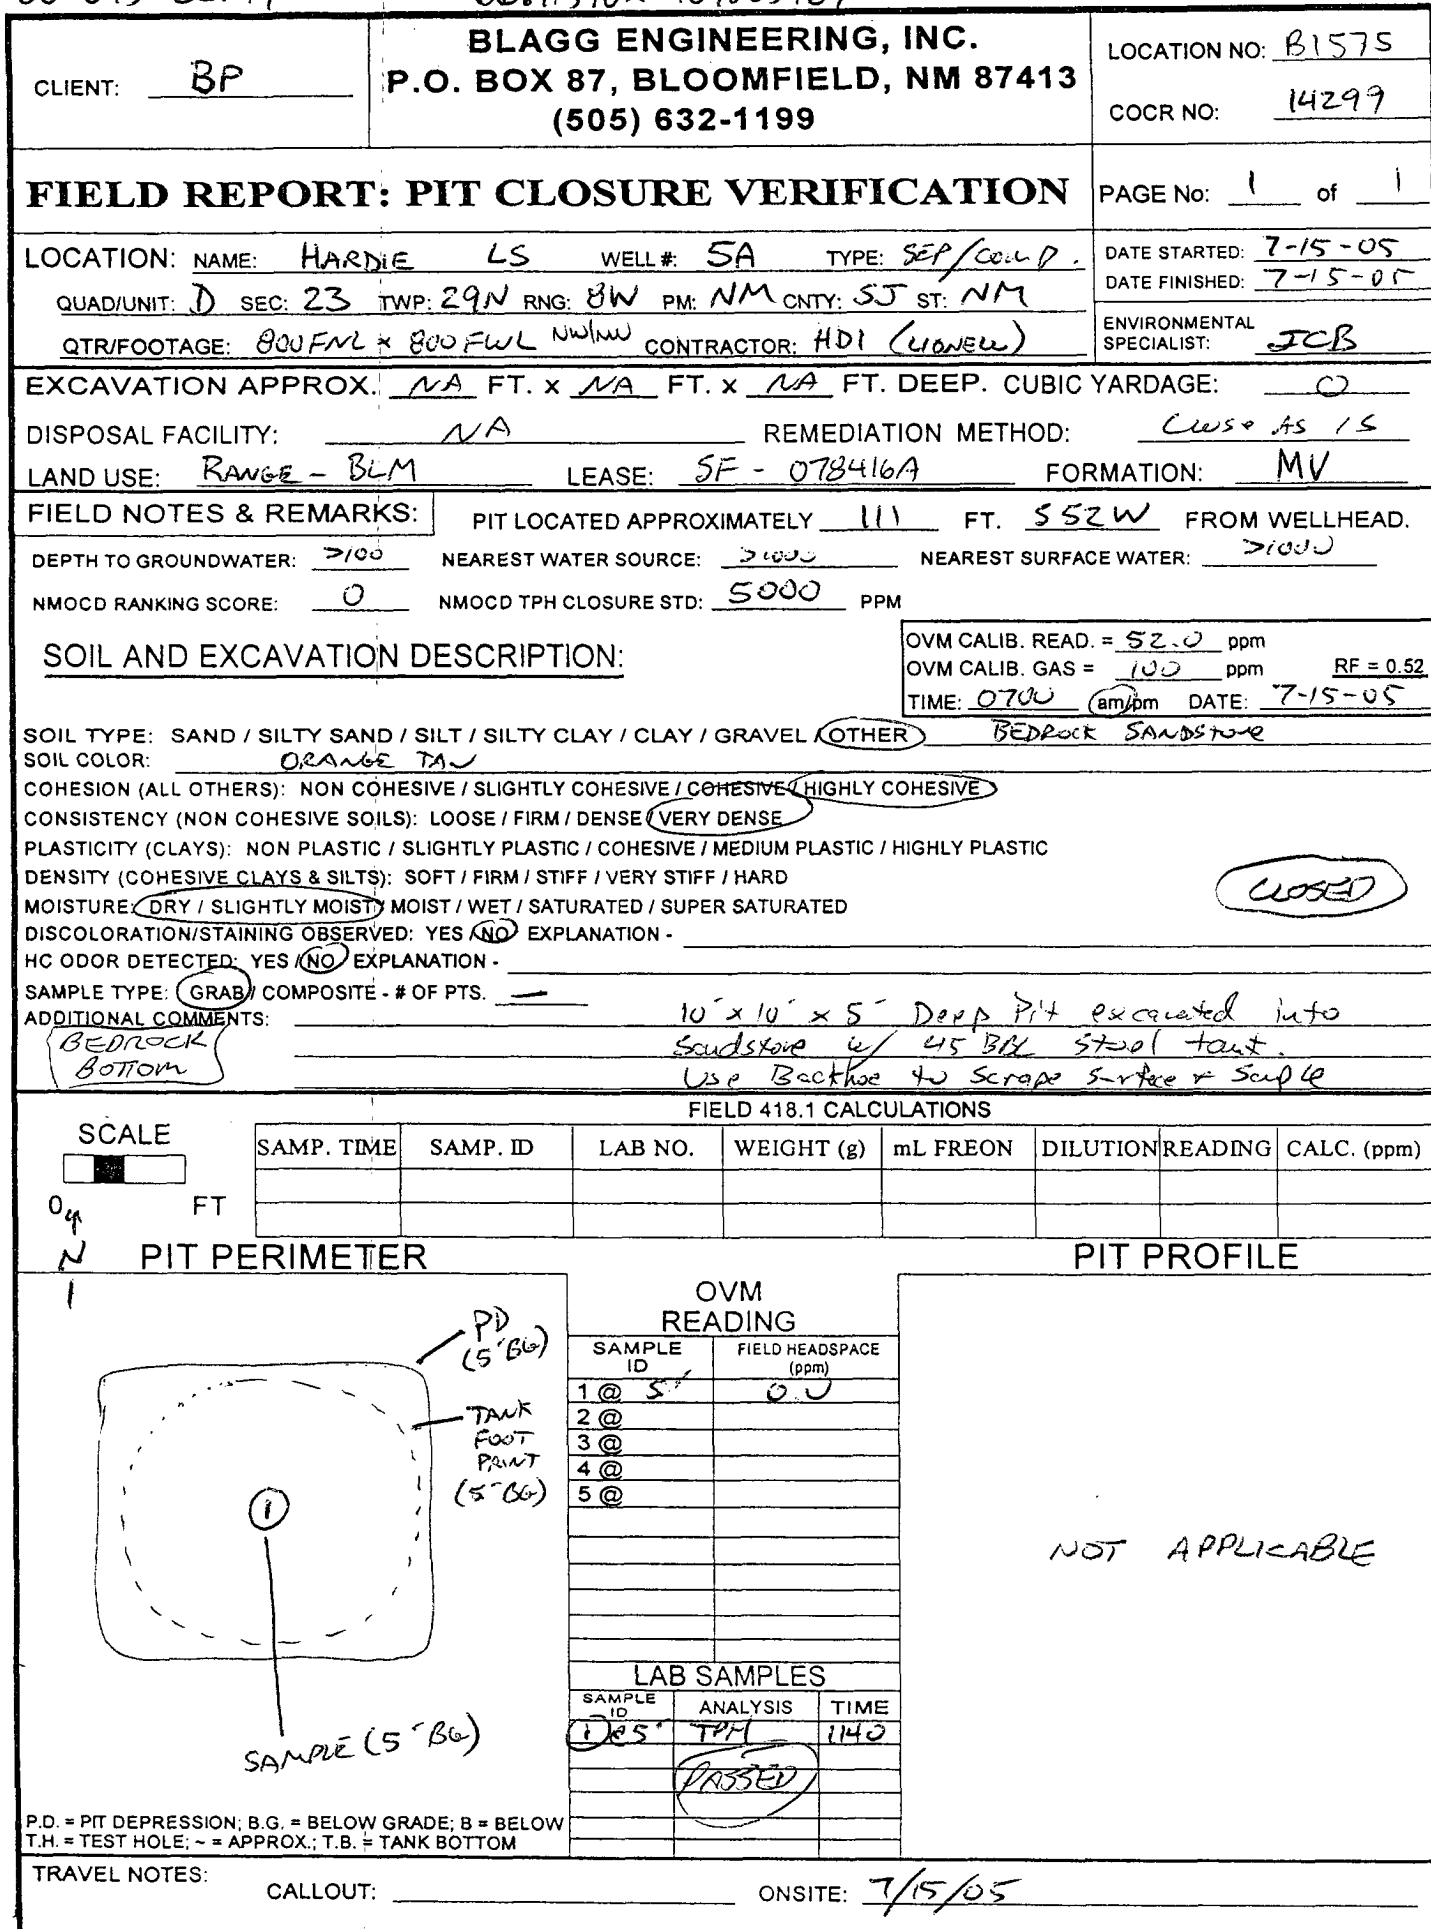 BLAGG ENGINEERING, INC.
CLIENT: BP
P.O. BOX 87, BLOOMFIELD, NM 87413
(505) 632-1199
LOCATION NO: B1575
COCR NO: 14299
FIELD REPORT: PIT CLOSURE VERIFICATION
PAGE No: 1 of 1
LOCATION: NAME: HARDIE LS WELL #: 5A TYPE: SEP/COMP.
QUAD/UNIT: D SEC: 23 TWP: 29N RNG: 8W PM: NM CNTY: SJ ST: NM
QTR/FOOTAGE: 800 FNL x 800 FWL NW/NW CONTRACTOR: HDI (LIONELL)
DATE STARTED: 7-15-05
DATE FINISHED: 7-15-05
ENVIRONMENTAL
SPECIALIST: JCB
EXCAVATION APPROX. NA FT. x NA FT. x NA FT. DEEP. CUBIC YARDAGE: 0
DISPOSAL FACILITY: NA REMEDIATION METHOD: Close AS IS
LAND USE: RANGE - BLM LEASE: SF - 078416A FORMATION: MV
FIELD NOTES & REMARKS: PIT LOCATED APPROXIMATELY 111 FT. S52W FROM WELLHEAD.
DEPTH TO GROUNDWATER: >100 NEAREST WATER SOURCE: >1000 NEAREST SURFACE WATER: >1000
NMOCD RANKING SCORE: 0 NMOCD TPH CLOSURE STD: 5000 PPM
SOIL AND EXCAVATION DESCRIPTION:
OVM CALIB. READ. = 52.0 ppm
OVM CALIB. GAS = 100 ppm RF = 0.52
TIME: 0700 am/pm DATE: 7-15-05
SOIL TYPE: SAND / SILTY SAND / SILT / SILTY CLAY / CLAY / GRAVEL / OTHER BEDROCK SANDSTONE
SOIL COLOR: ORANGE TAN
COHESION (ALL OTHERS): NON COHESIVE / SLIGHTLY COHESIVE / COHESIVE / HIGHLY COHESIVE
CONSISTENCY (NON COHESIVE SOILS): LOOSE / FIRM / DENSE / VERY DENSE
PLASTICITY (CLAYS): NON PLASTIC / SLIGHTLY PLASTIC / COHESIVE / MEDIUM PLASTIC / HIGHLY PLASTIC
DENSITY (COHESIVE CLAYS & SILTS): SOFT / FIRM / STIFF / VERY STIFF / HARD
CLOSED
MOISTURE: DRY / SLIGHTLY MOIST / MOIST / WET / SATURATED / SUPER SATURATED
DISCOLORATION/STAINING OBSERVED: YES / NO EXPLANATION -
HC ODOR DETECTED: YES / NO EXPLANATION -
SAMPLE TYPE: GRAB / COMPOSITE - # OF PTS. —
ADDITIONAL COMMENTS: 10' x 10' x 5' Deep Pit excavated into
Sandstone w/ 45 BBL Steel tank.
Use Backhoe to Scrape Surface & Sample
BEDROCK
BOTTOM
FIELD 418.1 CALCULATIONS
SCALE
0 FT
SAMP. TIME SAMP. ID LAB NO. WEIGHT (g) mL FREON DILUTION READING CALC. (ppm)
N
PIT PERIMETER
PIT PROFILE
PD
(5' BG)
TANK
FOOT
PRINT
(5' BG)
1
SAMPLE (5' BG)
OVM
READING
SAMPLE
ID
FIELD HEADSPACE
(ppm)
1 @ 5' 0.0
2 @
3 @
4 @
5 @
NOT APPLICABLE
LAB SAMPLES
SAMPLE
ID ANALYSIS TIME
1 @ 5' TPH 1140
PASSED
P.D. = PIT DEPRESSION; B.G. = BELOW GRADE; B = BELOW
T.H. = TEST HOLE; ~ = APPROX.; T.B. = TANK BOTTOM
TRAVEL NOTES:
CALLOUT: ONSITE: 7/15/05